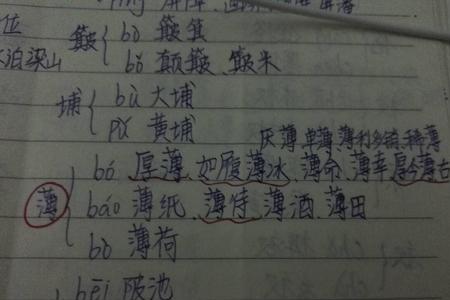 屏障
位 簸 bò 簸箕
泊梁山 bǒ 颠簸、簸米
埔 bù 大埔
pǔ 黄埔
厌薄 单薄 薄利多销、稀薄
薄 bó 厚薄、如履薄冰、薄命、薄幸厚今薄古
báo 薄纸、薄待、薄酒、薄田
bò 薄荷
bēi 陂池